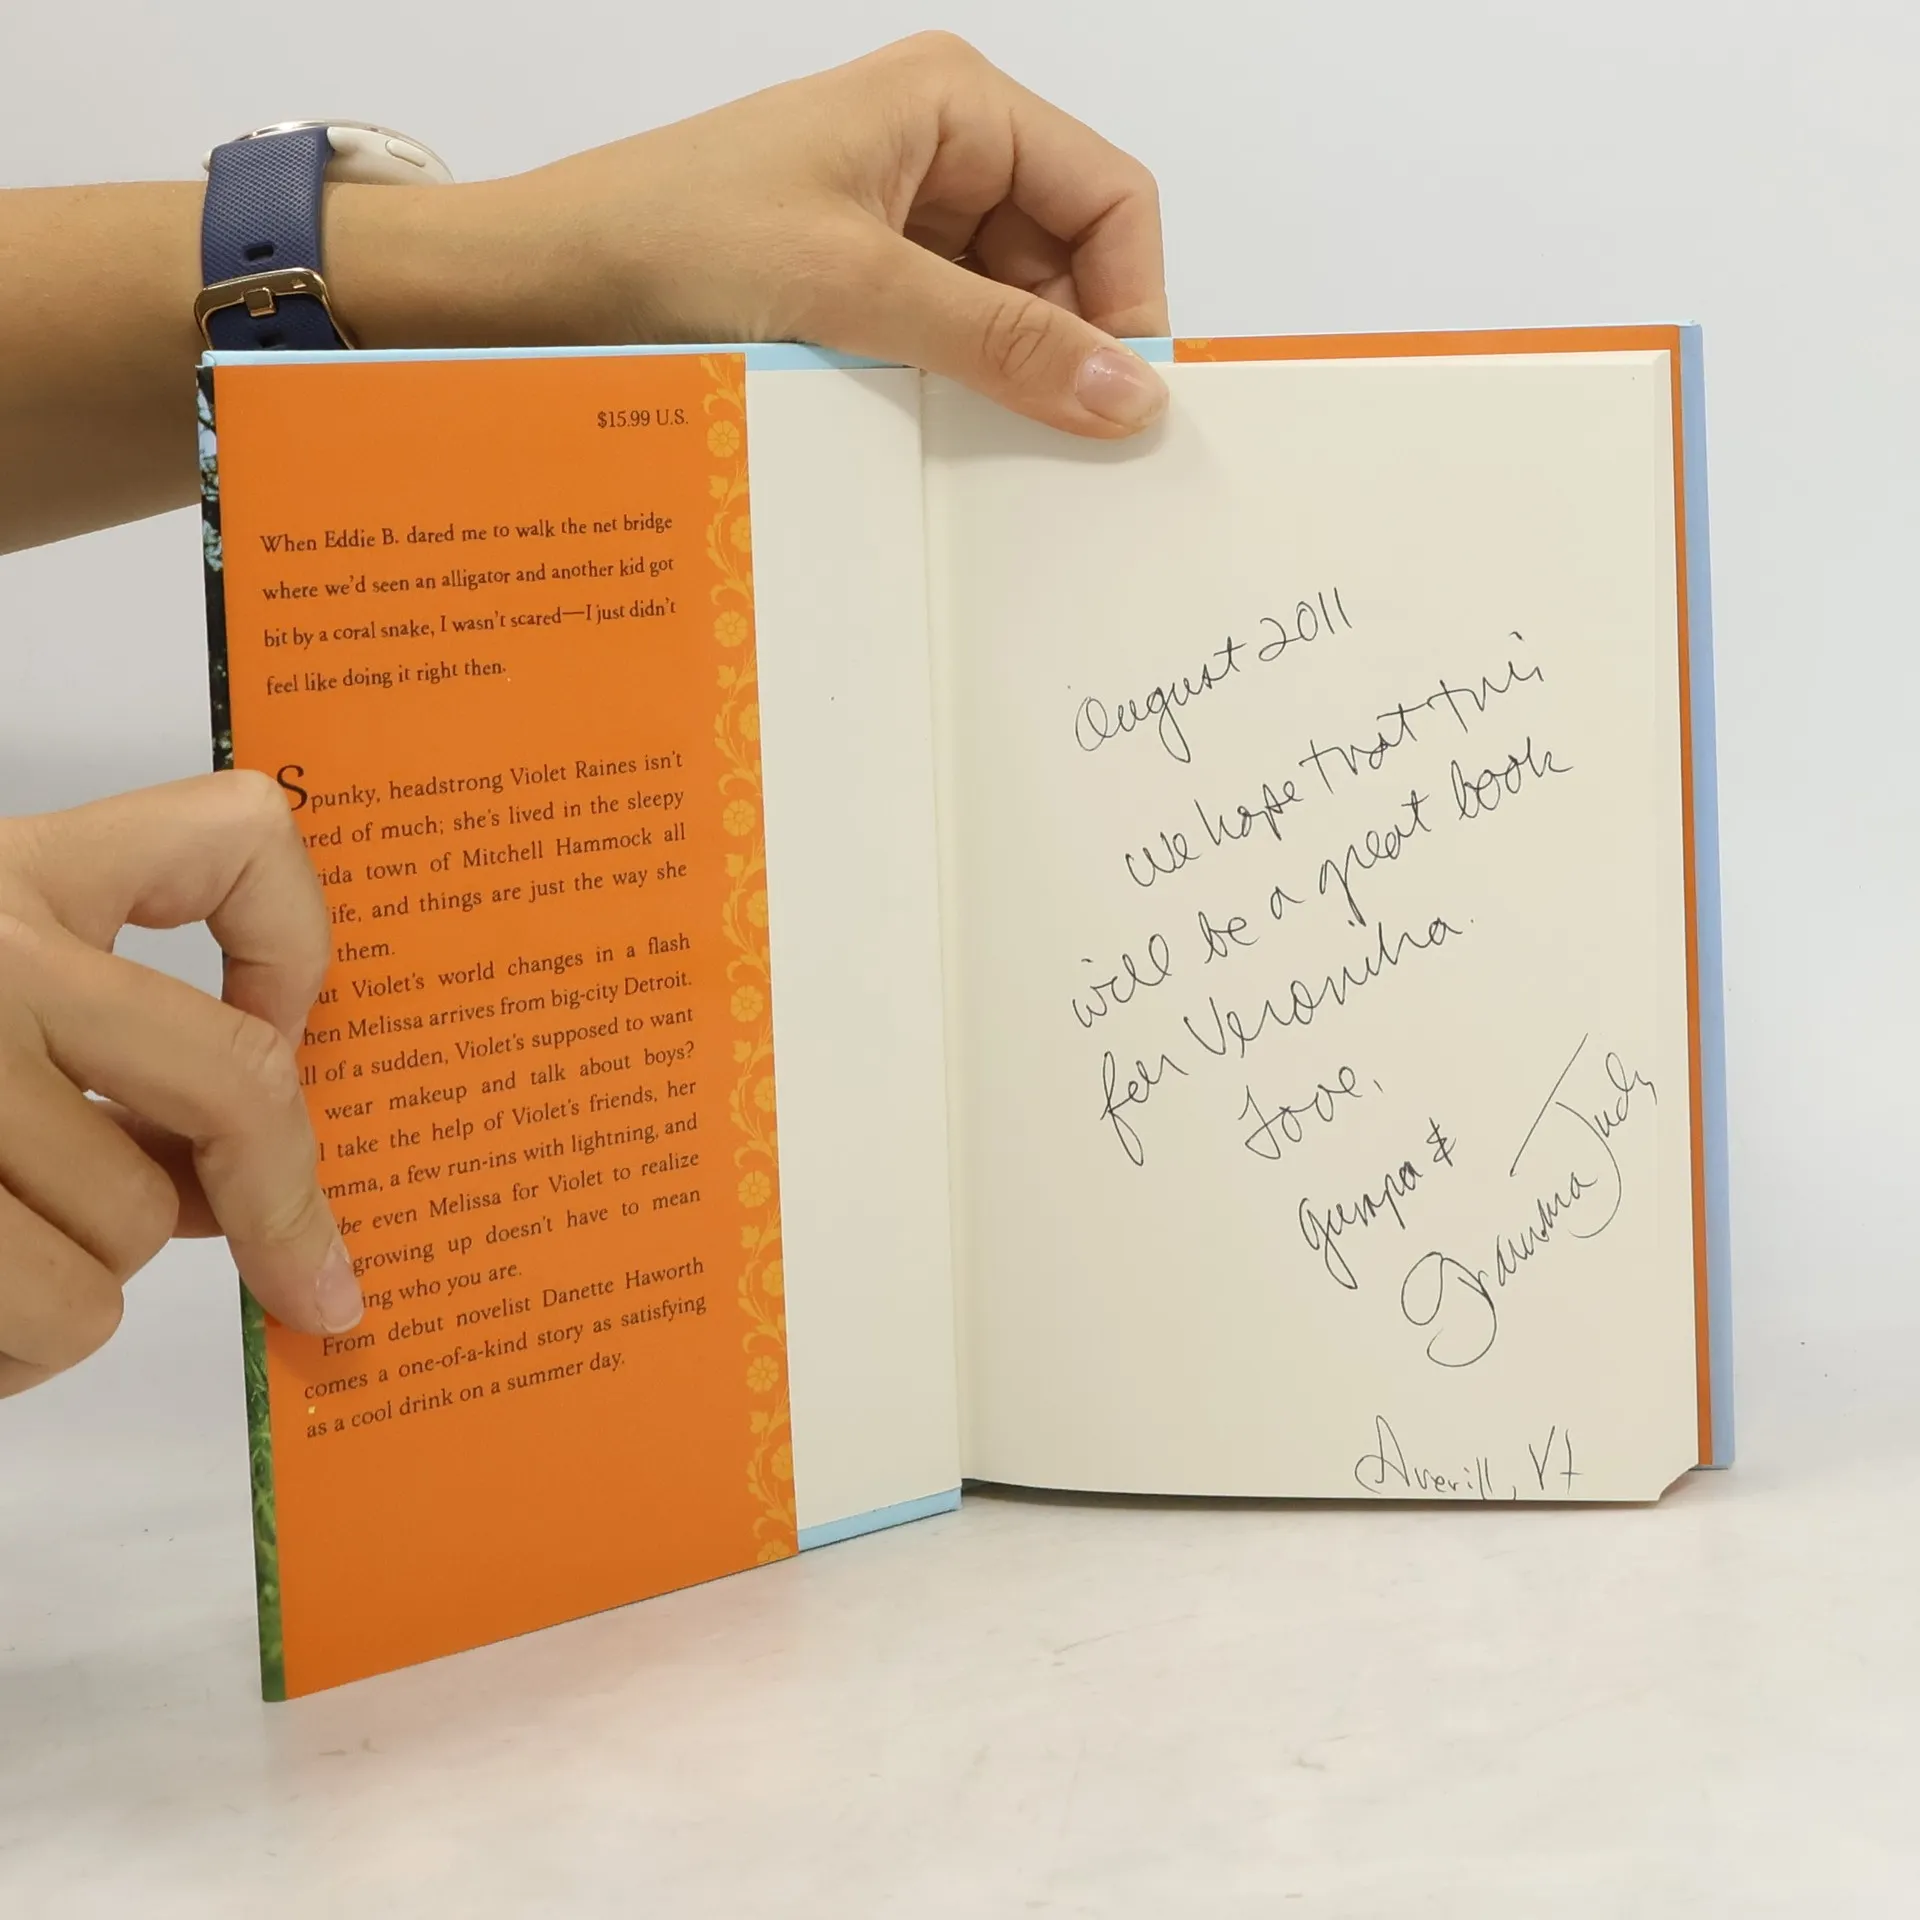 $15.99 U.S.
When Eddie B. dared me to walk the net bridge
where we'd seen an alligator and another kid got
bit by a coral snake, I wasn't scared—I just didn't
feel like doing it right then.
Spunky, headstrong Violet Raines isn't
of much; she's lived in the sleepy
town of Mitchell Hammock all
and things are just the way she
them.
Violet's world changes in a flash
Melissa arrives from big-city Detroit.
of a sudden, Violet's supposed to want
wear makeup and talk about boys?
take the help of Violet's friends, her
a few run-ins with lightning, and
even Melissa for Violet to realize
growing up doesn't have to mean
who you are.
From debut novelist Danette Haworth
comes a one-of-a-kind story as satisfying
as a cool drink on a summer day.
August 2011
We hope that this
will be a great book
for Veronika.
Love,
Gumpa &
Grandma Judy
Averill, Vt